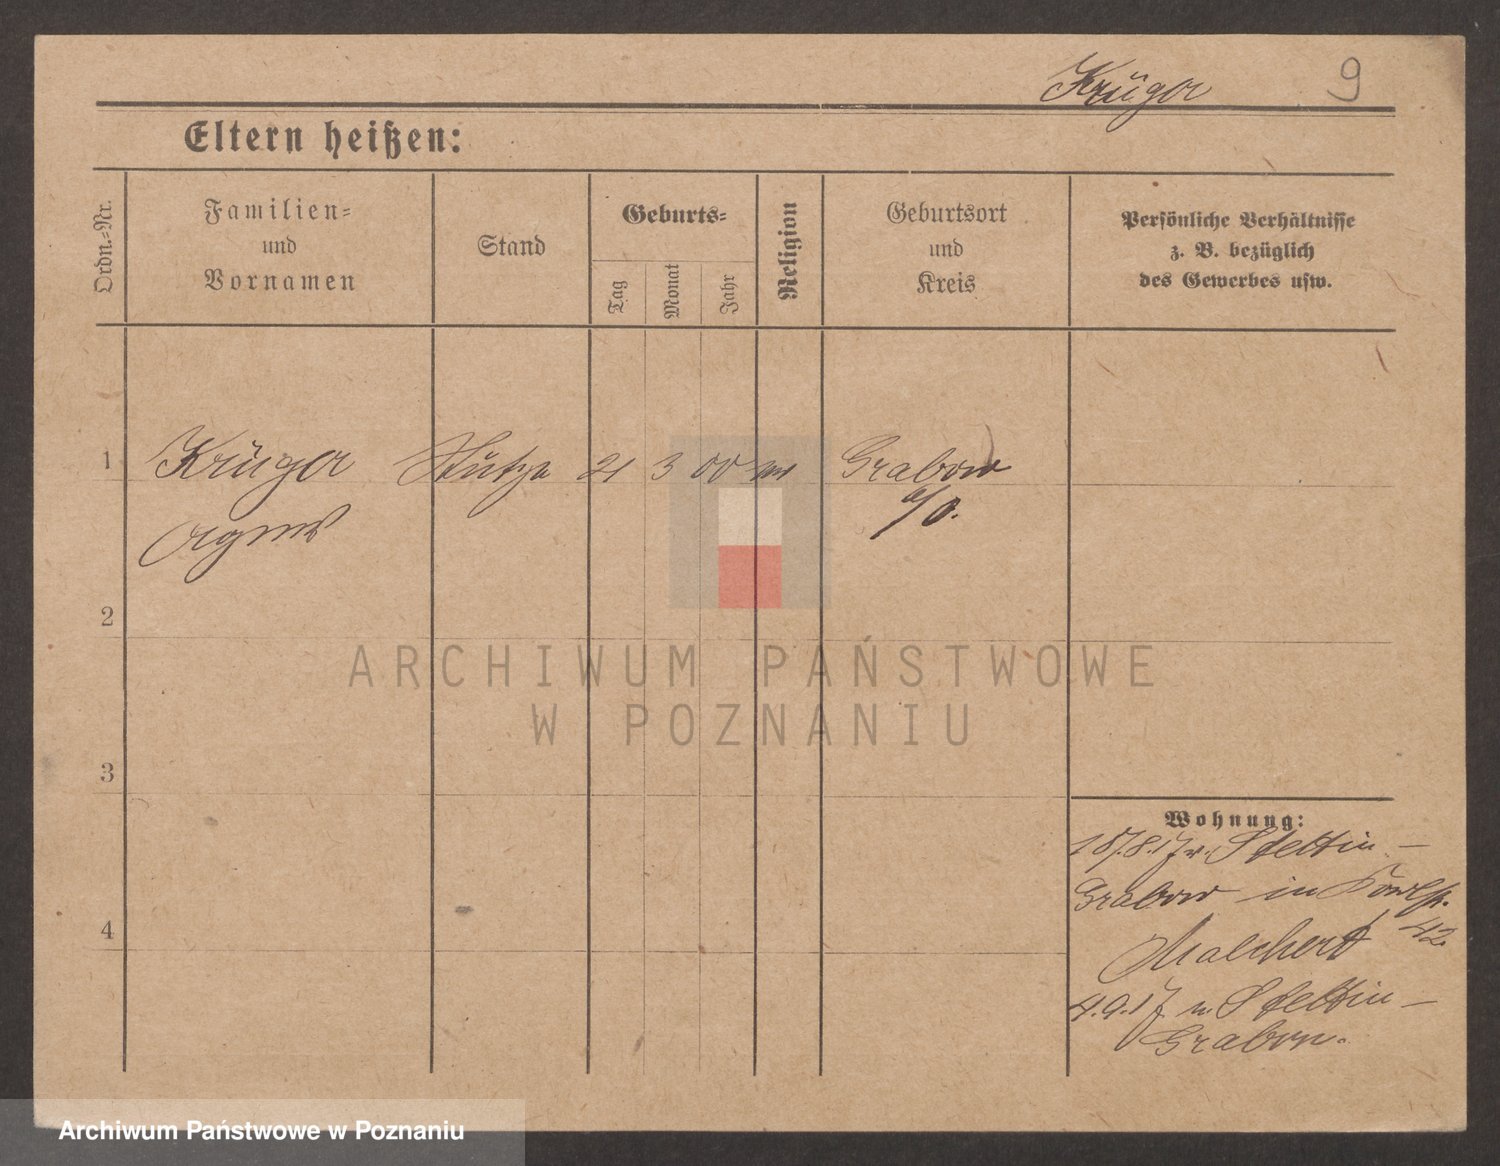 Krüger 9
Eltern heißen:
Ordn.=Nr.
Familien=
und
Vornamen
Stand
Geburts=
Tag
Monat
Jahr
Religion
Geburtsort
und
Kreis
Persönliche Verhältnisse
z. B. bezüglich
des Gewerbes usw.
1 Krüger Stütze 21 3 00 Grabow
a/O.
Agnes
2
3
4
Wohnung:
Stettin –
Grabow in
42
4.9.17 n. Stettin –
Grabow.
ARCHIWUM PAŃSTWOWE
W POZNANIU
Archiwum Państwowe w Poznaniu